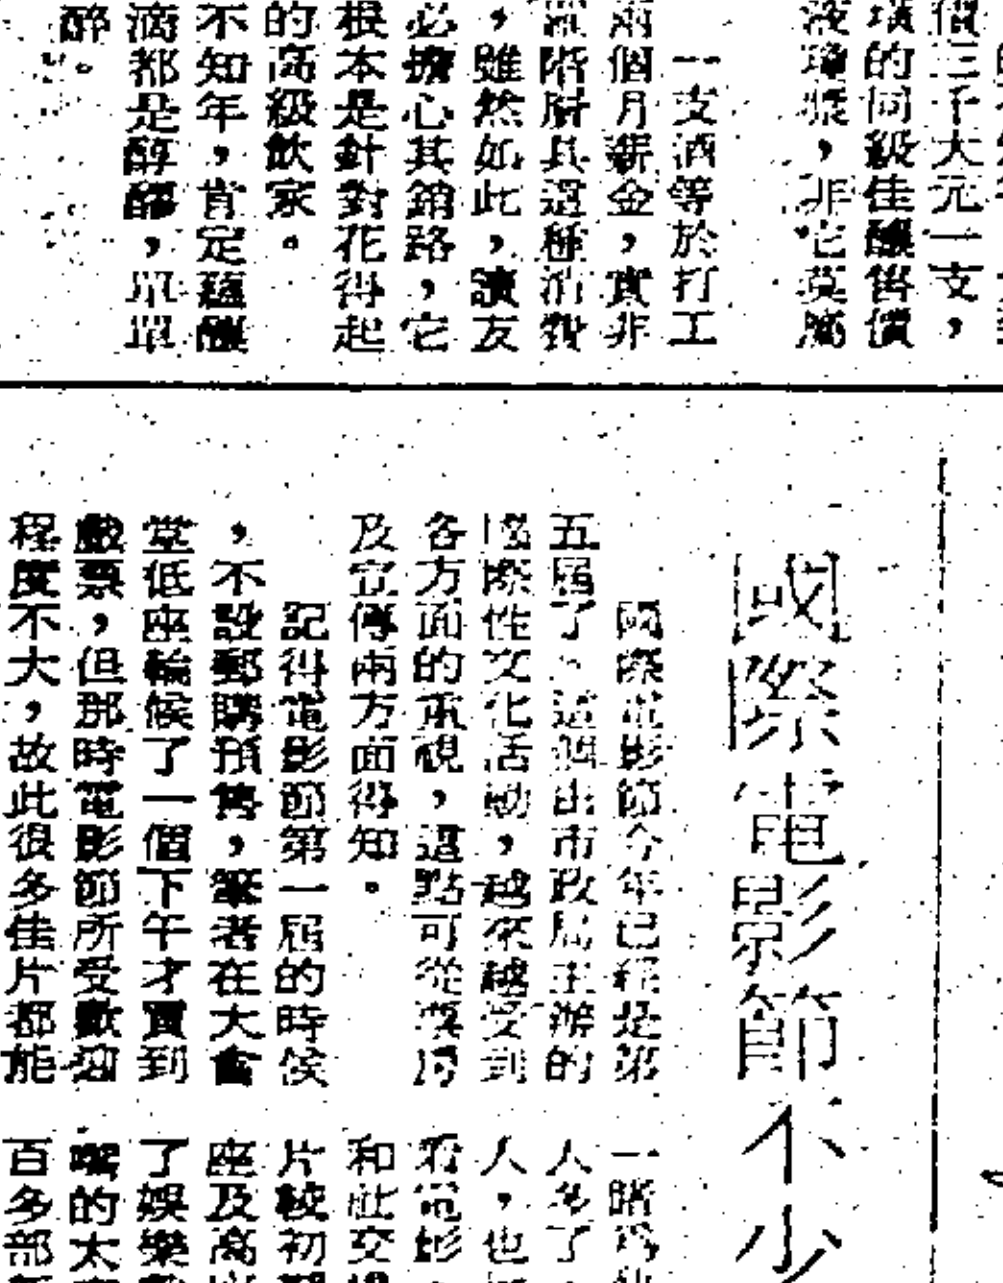 價三千大元一支，
的同級佳釀售價
液瓊漿，非它莫屬
一支酒等於打工
兩個月薪金，實非
階層具這種消費
，雖然如此，讀友
必擔心其銷路，它
根本是針對花得起
的高級飲家。
不知年，肯定蘊釀
滴都是醇醪，單單
醉。
國際電影節不少
國際電影節今年已經是第
五屆了。這個由市政局主辦的
國際性文化活動，越來越受到
各方面的重視，這點可從票房
及宣傳兩方面得知。
記得電影節第一屆的時候
，不設郵購預售，筆者在大會
堂低座輪候了一個下午才買到
戲票，但那時電影節所受歡迎
程度不大，故此很多佳片都能
一睹為
人多了
人，也
看電影，
和社交
片較初
座及高
了娛樂
嘴的太
百多部